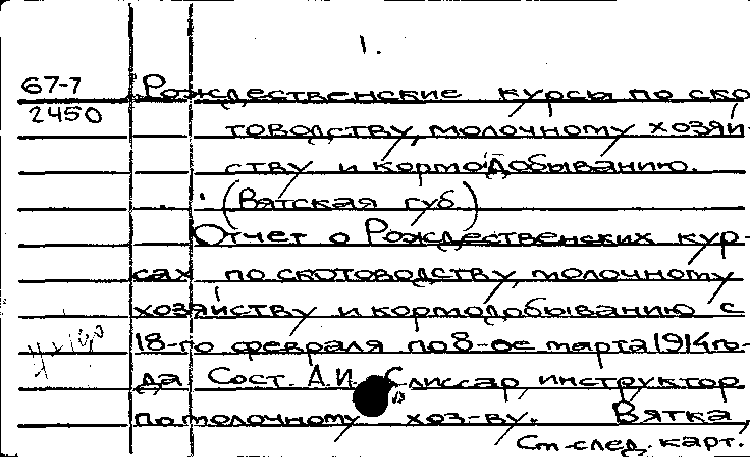 1.
67-7 Рождественские курсы по ско
2450 товодству, молочному хозяй-
ству и кормодобыванию.
(Вятская губ.)
Отчет о Рождественских кур-
сах по скотоводству, молочному
хозяйству и кормодобыванию с
18-го февраля по 8-ое марта 1914 го-
да Сост. А.И. Слиссар, инструктор
по молочному хоз-ву. Вятка,
См. след. карт.